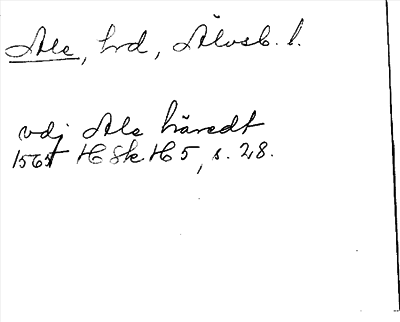 Ale, hrd, Älvsb. l.
vdj Ale häredt
1565 HSkH 5, s. 28.